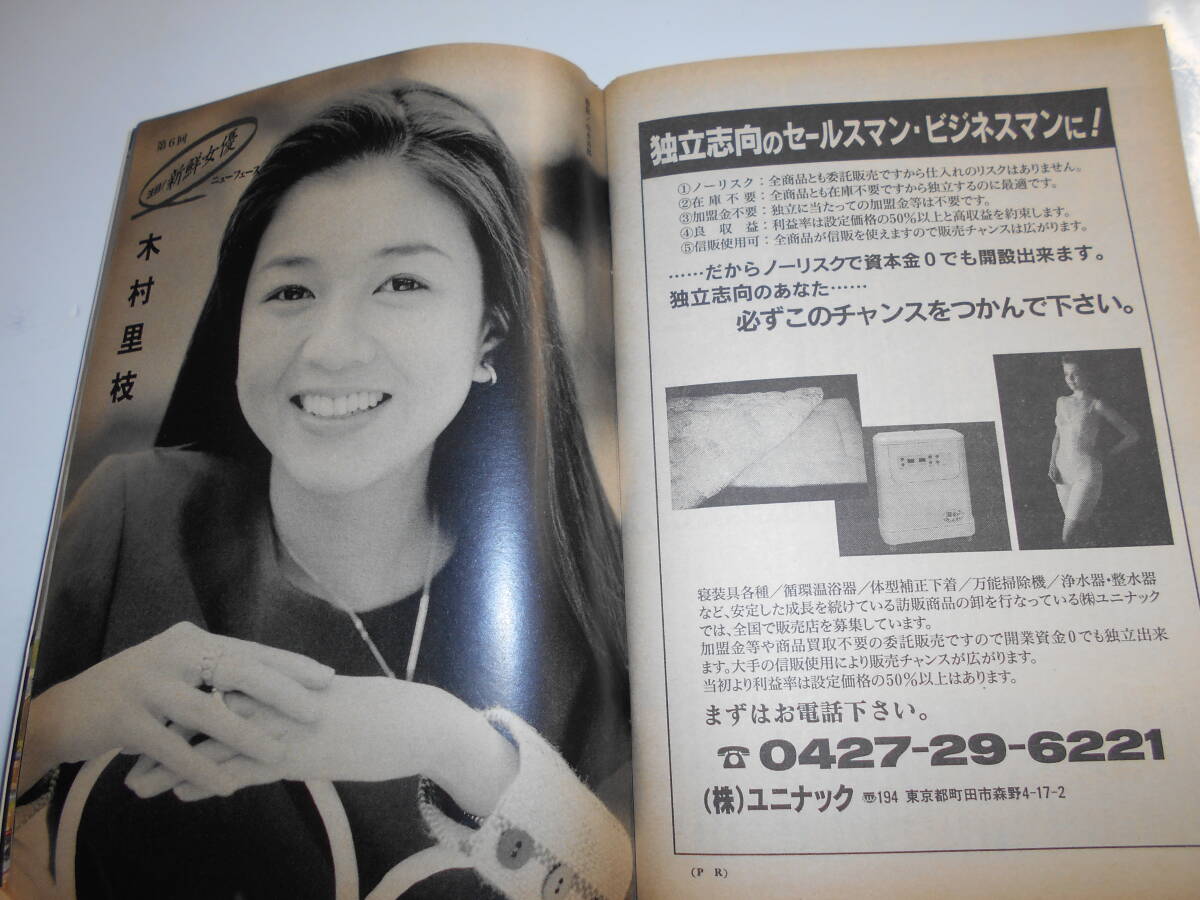 第6回
新鮮女優
ニューフェース
木村里枝
独立志向のセールスマン・ビジネスマンに!
①ノーリスク:全商品とも委託販売ですから仕入れのリスクはありません。
②在庫不要:全商品とも在庫不要ですから独立するのに最適です。
③加盟金不要:独立に当たっての加盟金等は不要です。
④良収益:利益率は設定価格の50%以上と高収益を約束します。
⑤信販使用可:全商品が信販を使えますので販売チャンスは広がります。
……だからノーリスクで資本金0でも開設出来ます。
独立志向のあなた……
必ずこのチャンスをつかんで下さい。
寝装具各種/循環温浴器/体型補正下着/万能掃除機/浄水器・整水器
など、安定した成長を続けている訪販商品の卸を行なっている㈱ユニナック
では、全国で販売店を募集しています。
加盟金等や商品買取不要の委託販売ですので開業資金0でも独立出来
ます。大手の信販使用により販売チャンスが広がります。
当初より利益率は設定価格の50%以上はあります。
まずはお電話下さい。
☎0427-29-6221
(株)ユニナック 〠194 東京都町田市森野4-17-2
(PR)